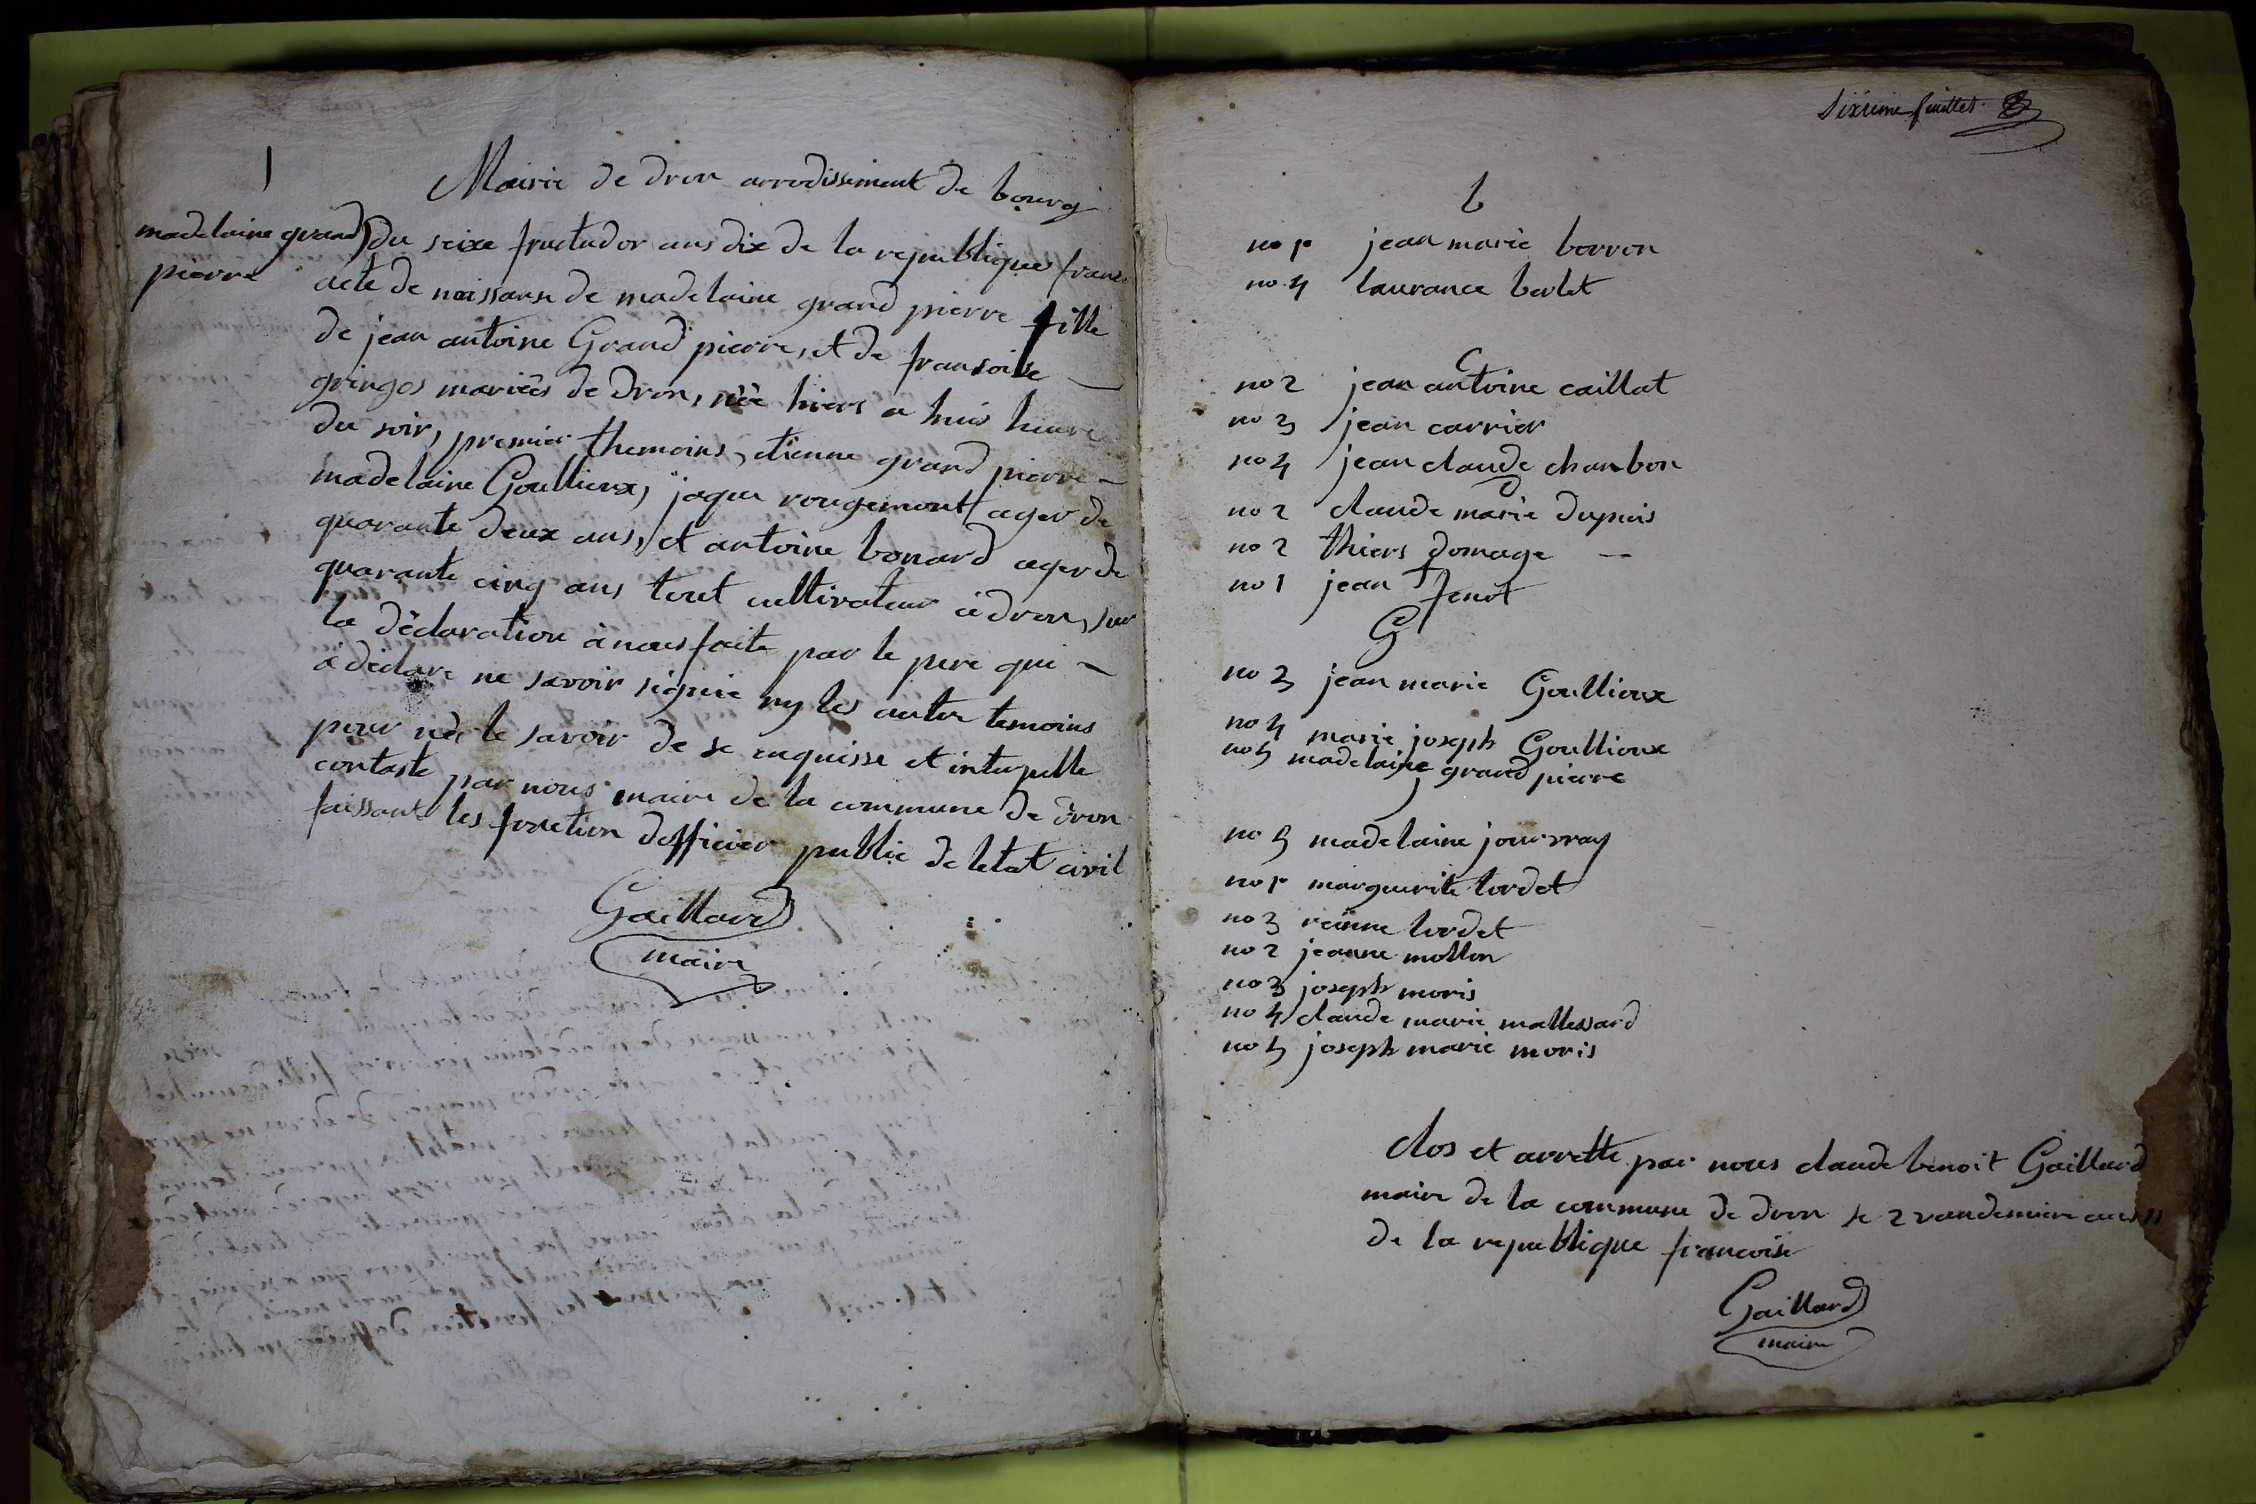 1
Mairie de dron arrodissement de bourg
madelaine grand
pierre
du seixe fructudor ans dix de la republique franc
acte de naissanse de madelaine grand pierre fille
de jean antoine Grand pierre, et de fransoise
gringos mariés de dron, née hiers a huis heure
du soir, premier themoins, etienne grand pierre
madelaine Goullioux, jaque rougemont ager de
quarante deux ans, et antoine bonard ager de
quarante cinq ans tout cultivateur à dron, sur
la déclaration à nous faite par le pere qui
à déclare ne savoir signie ny les auter temoins
pour ne le savoir de se enquisse et interpelle
contaste par nous maire de la commune de dron
faissant les fonction dofficier public de letat civil
Gaillard
maire
Sixième feuillet
b
no 1r jean marie borron
no 4 laurance berlet
C
no 2 jean antoine caillat
no 3 jean carrier
no 4 jean claude chanbon
D
no 2 claude marie dupuis
no 2 thiers domage
no 1 jean fenot
G
no 3 jean marie Goullioux
no 4 marie joseph Goullioux
no 5 madelaine grand pierre
j
no 5 madelaine jouvray
no 1r marguerite tordet
no 3 reinne tordet
no 2 jeanne mollon
no 3 joseph moris
no 4 claude marie mallessard
no 5 joseph marie moris
clos et arrette par nous claude benoit Gaillard
maire de la commune de dron le 2 vandemiere ans 11
de la republique francoise
Gaillard
maire